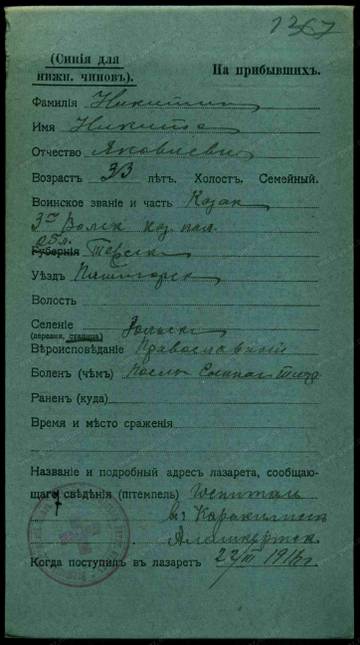 (Синія для
нижн. чиновъ).
На прибывшихъ.
Фамилія Никитин
Имя Никита
Отчество Яковлевич
Возрастъ 23 лѣтъ. Холост. Семейный.
Воинское званіе и часть Казак
3й Волгск каз. пол.
обл.
Губернія Терск
Уѣздъ Пятигорск
Волость
Селеніе
(деревня, станица)
Вѣроисповѣданіе Православный
Боленъ (чѣмъ) тифа
Раненъ (куда)
Время и мѣсто сраженія
Названіе и подробный адресъ лазарета, сообщаю-
щаго свѣдѣнія (штемпель) Госпиталь
в г. Каракилисе
Алашкертск
Когда поступилъ въ лазаретъ 22/III 1916 г.